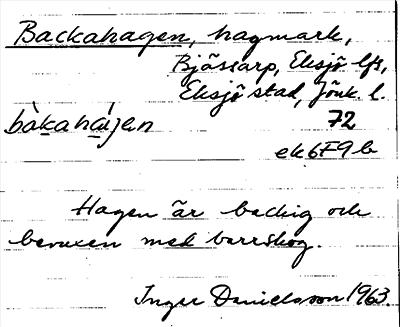 Backahagen, hagmark,
Bjässarp, Eksjö lfs,
Eksjö stad, Jönk. l.
bàkahájen 72
ek 6F9b
Hagen är backig och
bevuxen med barrskog.
Inger Danielsson 1963.